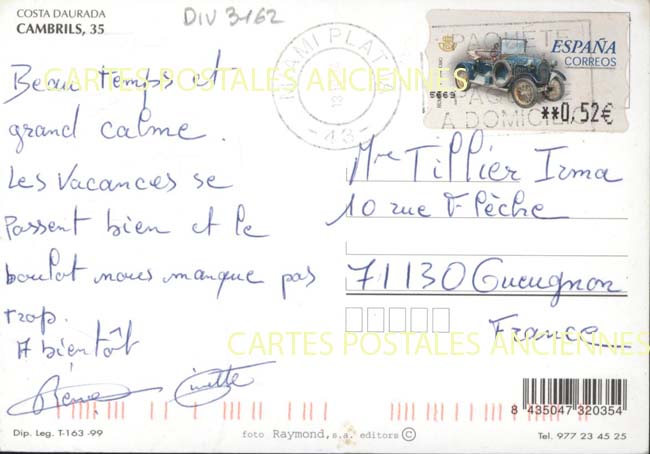 COSTA DAURADA
CAMBRILS, 35
DIV 3-162
MIAMI PLATJA
- 43 -
PAQUETE
A DOMICILIO
ESPAÑA
CORREOS
**0,52€
CARTES POSTALES ANCIENNES
Beau temps et
grand calme.
Les vacances se
Passent bien et le
boulot nous manque pas
trop.
A bientôt
Ginette
Mme Tillier Irma
10 rue Flèche
71130 Gueugnon
France
CARTES POSTALES ANCIENNES
8 435047 320354
Dip. Leg. T-163 -99
foto Raymond, s.a. editors ©
Tel. 977 23 45 25